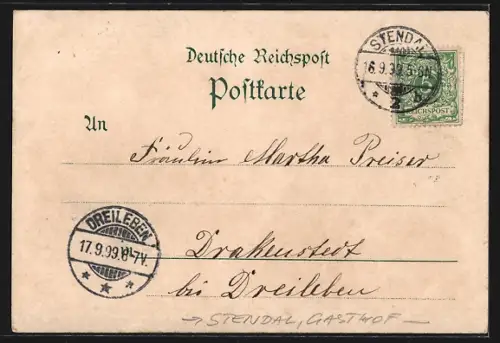 Deutsche Reichspost
Postkarte
STENDAL
16.9.99.5-6N.
* 2 b
REICHSPOST
An
Fräulein Martha Preiser
DREILEBEN
17.9.99.6-7V.
* * *
Drakenstedt
bei Dreileben
→ STENDAL, GASTHOF —